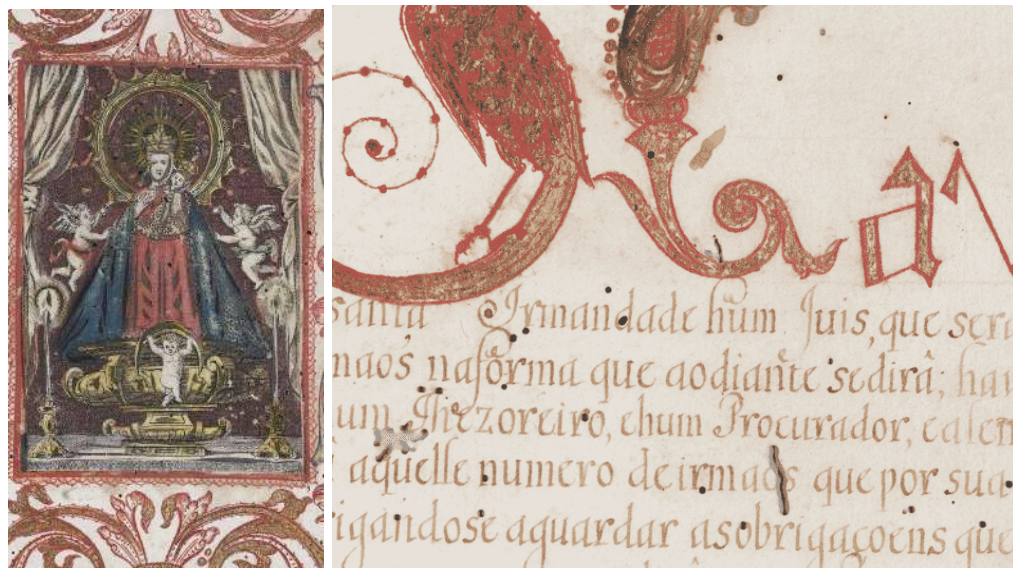 santa Irmandade hum Juis, que será
maos na forma que aodiante sedirâ; hav
um Thezoreiro, ehum Procurador, e
aquelle numero deirmaos que por sua
rigandose aguardar asobrigaçoens que